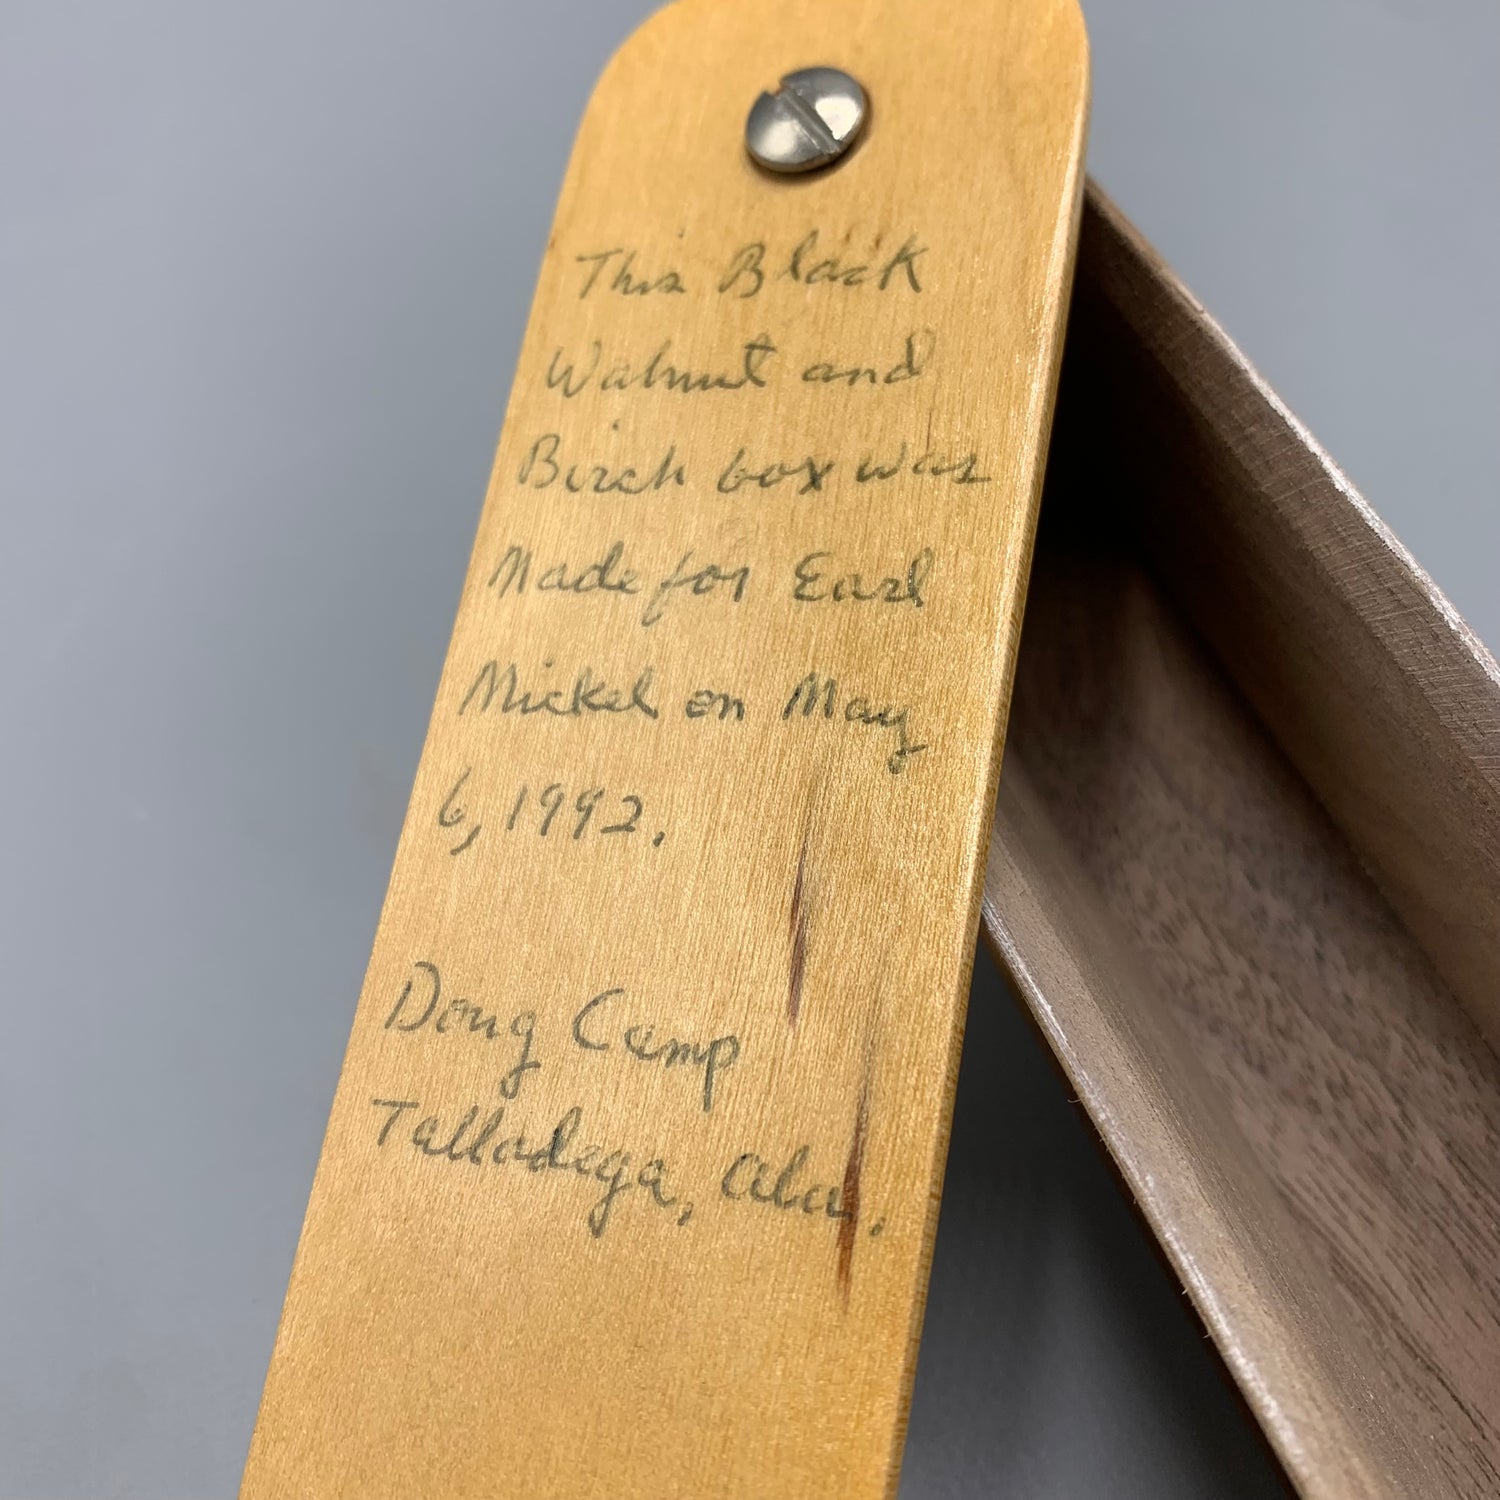 This Black
Walnut and
Birch box was
Made for Earl
Mickel on May
6, 1992.
Doug Camp
Talladega, Ala.